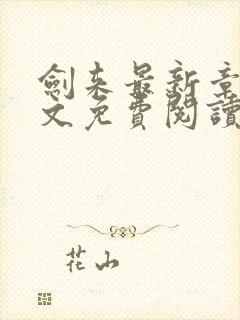 劍来最新章
文免費閱讀
花山